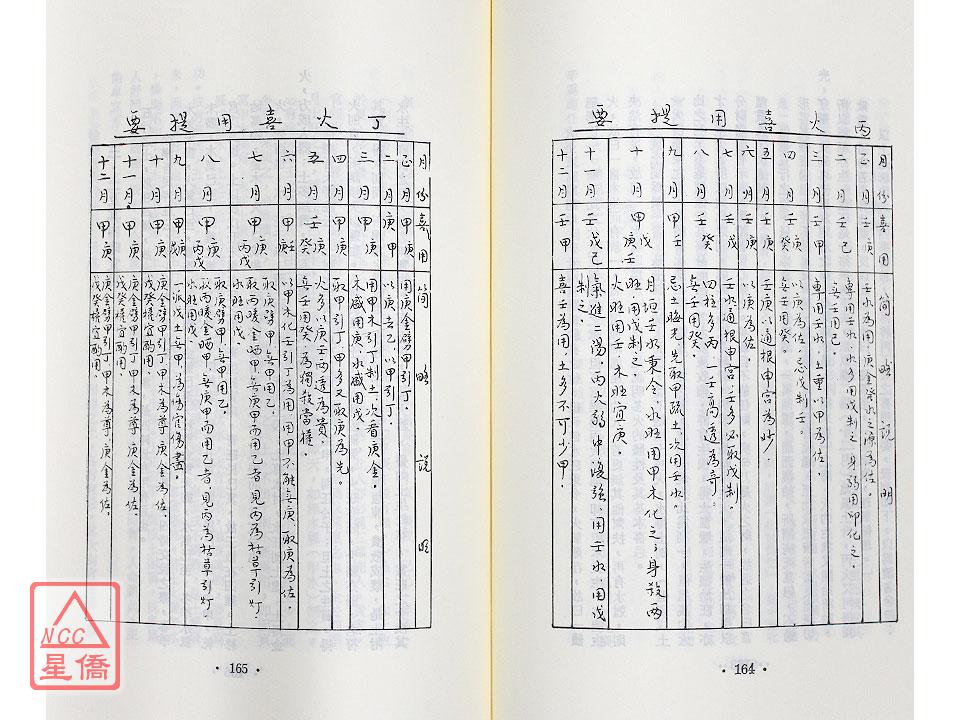 丙火喜用提要
月份 喜用 簡略說明
正月 壬庚 壬水為用庚金發水之源為佐。
二月 壬己 專用壬水,水多用戊制之,身弱用印化之,
無壬用己。
三月 壬甲 專用壬水,土重以甲為佐。
四月 壬庚癸 以庚為佐,忌戊制壬。
無壬用癸。
五月 壬庚 壬庚以通根申宮為妙。
六月 壬庚 以庚為佐。
七月 壬戊 壬水通根申宮壬多必取戊制。
八月 壬癸 四柱多丙,一壬高透為奇,
無壬用癸。
九月 甲壬 忌土晦光,先取甲疏土次用壬水。
十月 甲戊庚壬 月垣壬水秉令,水旺用甲木化之,身殺兩
旺用戊制之,
火旺用壬,木旺宜庚。
十一月 壬戊己 氣進二陽,丙火弱中復強,用壬水,用戊
制之。
十二月 壬甲 喜壬為用,土多不可少甲。
· 164 ·
丁火喜用提要
月份 喜用 簡略說明
正月 甲庚 用庚金劈甲引丁。
二月 庚甲 以庚去乙,以甲引丁。
三月 甲庚 用甲木引丁制土,次看庚金,
木盛用庚,水盛用戊。
四月 甲庚 取甲引丁,甲多又取庚為先。
五月 壬庚癸 火多以庚壬兩透為貴,
無壬用癸,為獨殺當權。
六月 甲庚壬 以甲木化壬引丁為用,用甲不能無庚,取庚為佐。
七月 甲庚丙戊 取庚劈甲,無甲用乙。
取丙暖金晒甲,無庚甲而用乙者,見丙為枯草引灯,
水旺用戊。
八月 甲庚丙戊 取庚劈甲,無甲用乙。
取丙暖金晒甲,無庚甲而用乙者,見丙為枯草引灯,
水旺用戊。
九月 甲庚戊 一派戊土無甲,為傷官傷盡。
十月 甲庚 庚金劈甲引丁,甲木為尊,庚金為佐,
戊癸權宜酌用。
十一月 甲庚 庚金劈甲引丁,甲木為尊,庚金為佐,
戊癸權宜酌用。
十二月 甲庚 庚金劈甲引丁,甲木為尊,庚金為佐。
戊癸權宜酌用。
· 165 ·
NCC
星僑